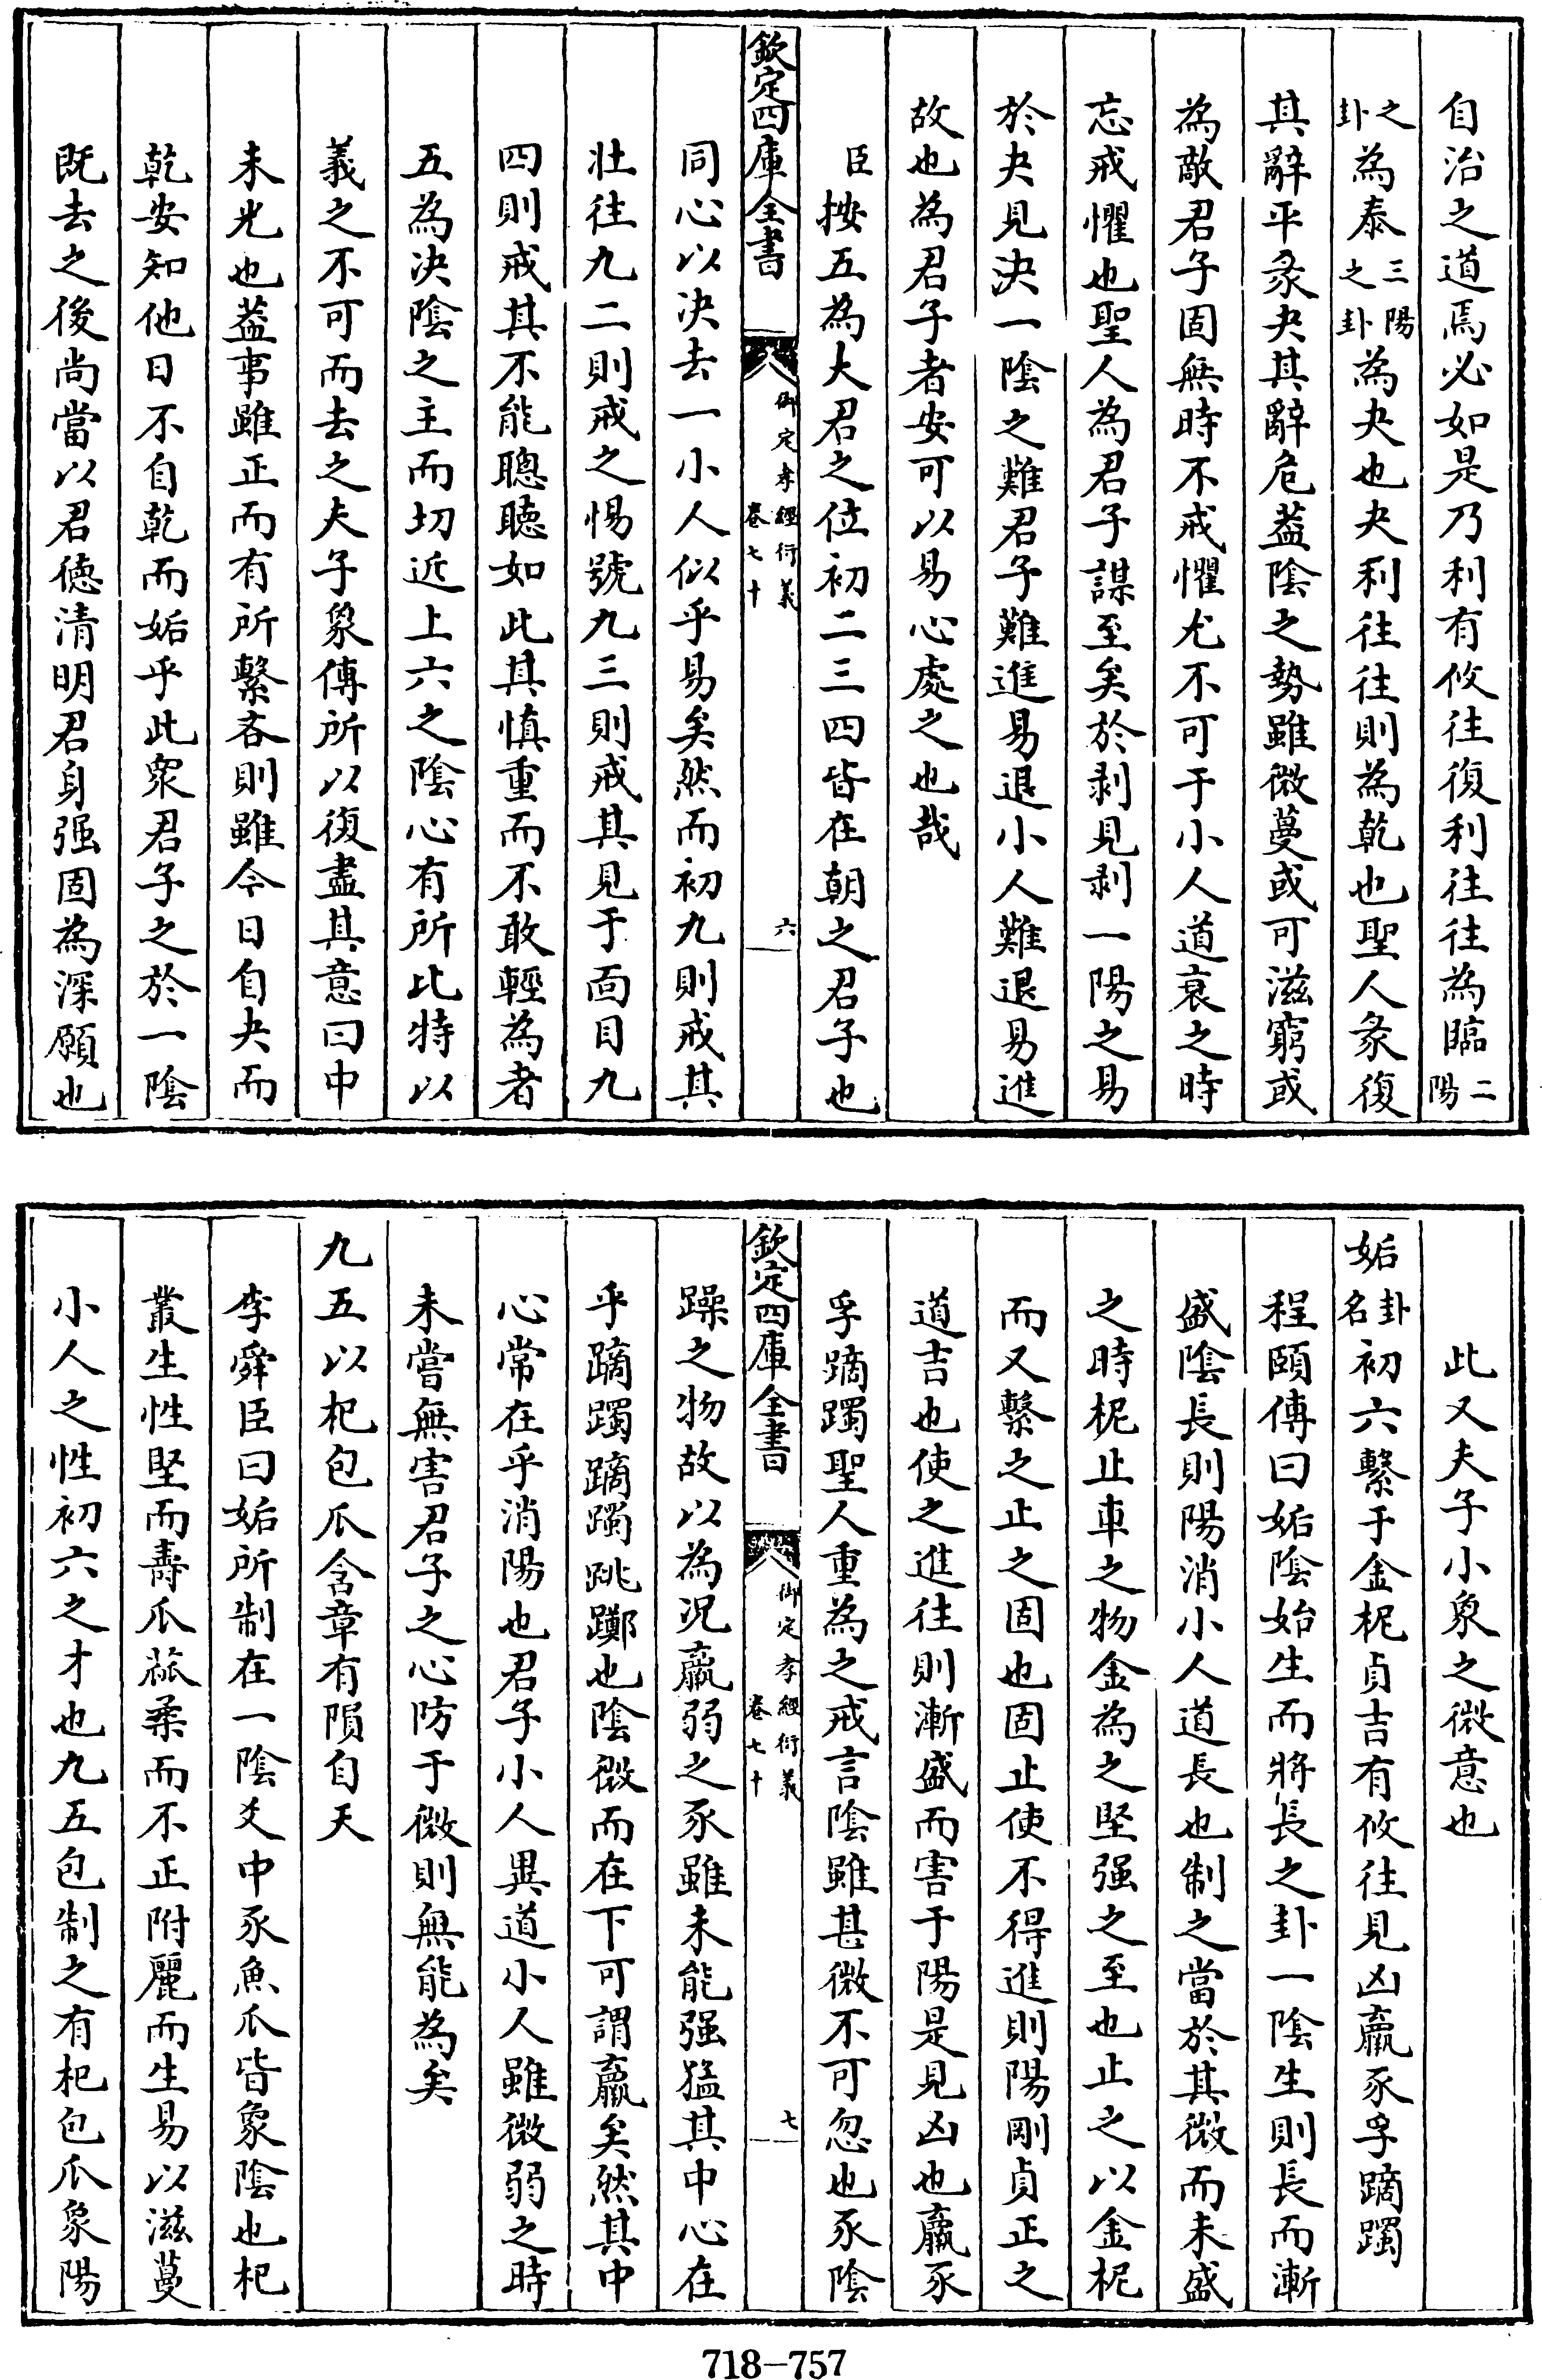 自治之道焉必如是乃利有攸往復利往往為臨二陽
之卦為泰三陽之卦為夬也夬利往往則為乾也聖人彖復
其辭平彖夬其辭危蓋陰之勢雖微蔓或可滋窮或
為敵君子固無時不戒懼尤不可于小人道衰之時
忘戒懼也聖人為君子謀至矣於剥見剥一陽之易
於夬見決一陰之難君子難進易退小人難退易進
故也為君子者安可以易心處之也哉
臣按五為大君之位初二三四皆在朝之君子也
欽定四庫全書
御定孝經衍義
卷七十
六
同心以决去一小人似乎易矣然而初九則戒其
壯往九二則戒之惕號九三則戒其見于面目九
四則戒其不能聰聽如此其慎重而不敢輕為者
五為决陰之主而切近上六之陰心有所比特以
義之不可而去之夫子象傳所以復盡其意曰中
未光也蓋事雖正而有所繫吝則雖今日自夬而
乾安知他日不自乾而姤乎此衆君子之於一陰
既去之後尚當以君德清明君身强固為深願也
此又夫子小象之微意也
姤卦名初六繫于金柅貞吉有攸往見凶羸豕孚蹢躅
程頤傳曰姤陰始生而將長之卦一陰生則長而漸
盛陰長則陽消小人道長也制之當於其微而未盛
之時柅止車之物金為之堅强之至也止之以金柅
而又繫之止之固也固止使不得進則陽剛貞正之
道吉也使之進往則漸盛而害于陽是見凶也羸豕
孚蹢躅聖人重為之戒言陰雖甚微不可忽也豕陰
欽定四庫全書
御定孝經衍義
卷七十
七
躁之物故以為況羸弱之豕雖未能强猛其中心在
乎蹢躅蹢躅跳躑也陰微而在下可謂羸矣然其中
心常在乎消陽也君子小人異道小人雖微弱之時
未嘗無害君子之心防于微則無能為矣
九五以杞包瓜含章有隕自天
李舜臣曰姤所制在一陰爻中豕魚瓜皆象陰也杞
叢生性堅而壽瓜蓏柔而不正附麗而生易以滋蔓
小人之性初六之才也九五包制之有杞包瓜象陽
718-757